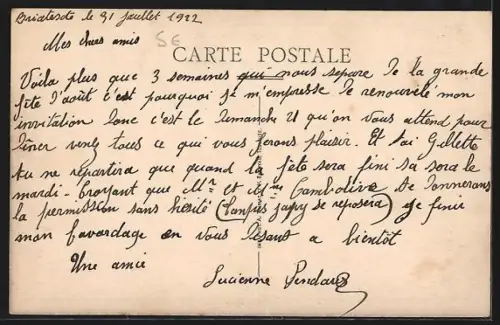 Briatexte le 31 Juillet 1922
Mes chers amis
5E
CARTE POSTALE
Voila plus que 3 semaines qui nous separe de la grande
fête d'août c'est pourquoi je m'empresse de renouvelé mon
invitation donc c'est le dimanche 21 qu'on vous attend pour
diner venez tous ce qui vous ferons plaisir. Et toi Gillette
tu ne repartira que quand la fête sera fini sa sera le
mardi - Croyant que Mr et Mme Cambolive te donnerons
la permission sans hésité ( se reposera) je finir
mon bavardage en vous disant a bientôt
Une amie
Lucienne